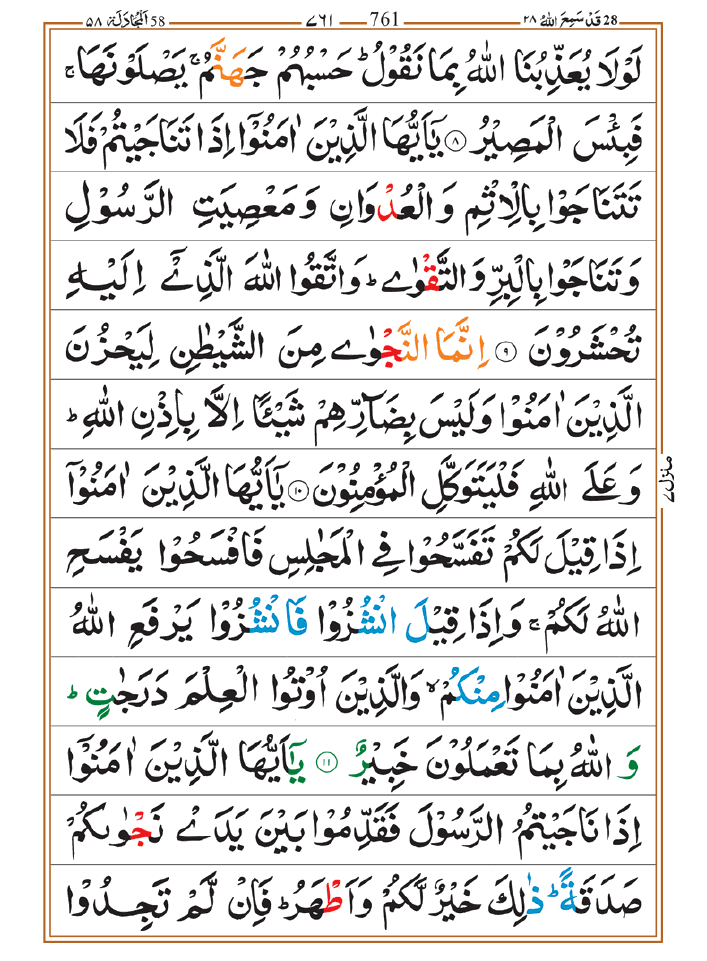 58 اَلْمُجَادَلَة ٥٨ ٧٦١ 761 28 قَدْ سَمِعَ اللهُ ٢٨
لَوْلَا يُعَذِّبُنَا اللّٰهُ بِمَا نَقُوْلُ ؕ حَسْبُهُمْ جَهَنَّمُ ۚ يَصْلَوْنَهَا ۚ
فَبِئْسَ الْمَصِيْرُ ۝٨ يٰۤاَيُّهَا الَّذِيْنَ اٰمَنُوْۤا اِذَا تَنَاجَيْتُمْ فَلَا
تَتَنَاجَوْا بِالْاِثْمِ وَالْعُدْوَانِ وَمَعْصِيَتِ الرَّسُوْلِ
وَتَنَاجَوْا بِالْبِرِّ وَالتَّقْوٰے ؕ وَاتَّقُوا اللّٰهَ الَّذِےْۤ اِلَيْهِ
تُحْشَرُوْنَ ۝٩ اِنَّمَا النَّجْوٰے مِنَ الشَّيْطٰنِ لِيَحْزُنَ
الَّذِيْنَ اٰمَنُوْا وَلَيْسَ بِضَآرِّهِمْ شَيْـًٔا اِلَّا بِاِذْنِ اللّٰهِ ؕ
وَعَلَے اللّٰهِ فَلْيَتَوَكَّلِ الْمُؤْمِنُوْنَ ۝١٠ يٰۤاَيُّهَا الَّذِيْنَ اٰمَنُوْۤا
اِذَا قِيْلَ لَكُمْ تَفَسَّحُوْا فِے الْمَجٰلِسِ فَافْسَحُوْا يَفْسَحِ
اللّٰهُ لَكُمْ ۚ وَاِذَا قِيْلَ انْشُزُوْا فَانْشُزُوْا يَرْفَعِ اللّٰهُ
الَّذِيْنَ اٰمَنُوْا مِنْكُمْ ۙ وَالَّذِيْنَ اُوْتُوا الْعِلْمَ دَرَجٰتٍ ؕ
وَاللّٰهُ بِمَا تَعْمَلُوْنَ خَبِيْرٌ ۝١١ يٰۤاَيُّهَا الَّذِيْنَ اٰمَنُوْۤا
اِذَا نَاجَيْتُمُ الرَّسُوْلَ فَقَدِّمُوْا بَيْنَ يَدَےْ نَجْوٰىكُمْ
صَدَقَةً ؕ ذٰلِكَ خَيْرٌ لَّكُمْ وَاَطْهَرُ ؕ فَاِنْ لَّمْ تَجِدُوْا
منزل ٧